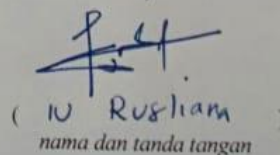 ( IU Rusliam
nama dan tanda tangan